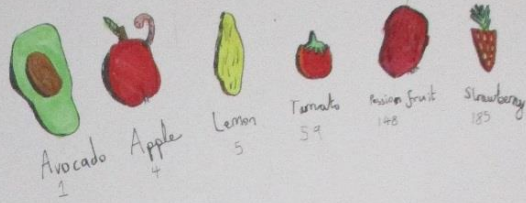 Avocado
1
Apple
4
Lemon
5
Tomato
59
Passion fruit
148
Strawberry
185